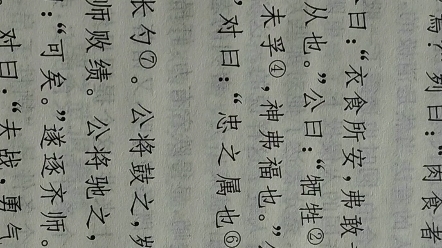 焉？刿曰：“肉食者
曰：“衣食所安，弗敢
从也。”公曰：“牺牲②
未孚④，神弗福也。”
对曰：“忠之属也⑥
长勺⑦。公将鼓之，
师败绩。公将驰之，
：“可矣。”遂逐齐师。
对曰：“夫战，勇气